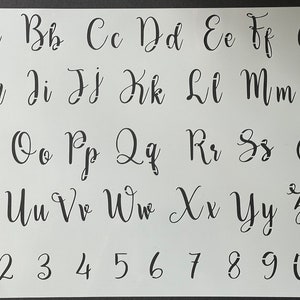 Bb Cc Dd Ee Ff
Ii Jj Kk Ll Mm
Oo Pp Qq Rr Ss
Uu Vv Ww Xx Yy
2 3 4 5 6 7 8 9